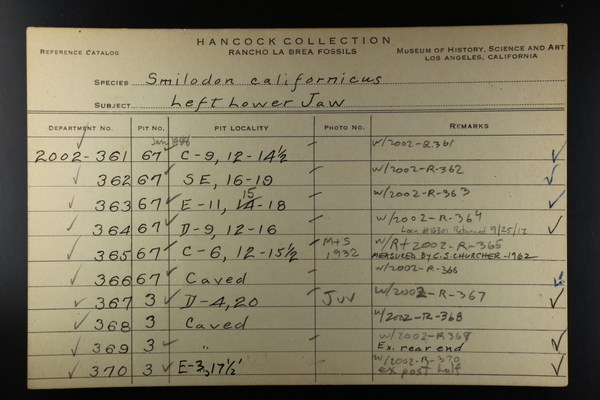 HANCOCK COLLECTION
REFERENCE CATALOG RANCHO LA BREA FOSSILS MUSEUM OF HISTORY, SCIENCE AND ART
LOS ANGELES, CALIFORNIA
SPECIES Smilodon californicus
SUBJECT Left Lower Jaw
DEPARTMENT NO. PIT NO. PIT LOCALITY PHOTO NO. REMARKS
2002-361 67 C-9, 12-14½ w/2002-R-361
362 67 SE, 16-19 w/2002-R-362
363 67 E-11, 14-18 15 w/2002-R-363
364 67 D-9, 12-16 w/2002-R-364
Returned 9/25/12
365 67 C-6, 12-15½ M+S 1932 w/Rt 2002-R-365
MEASURED BY C.S. CHURCHER-1962
366 67 Caved w/2002-R-366
367 3 D-4, 20 Juv w/2002-R-367
368 3 Caved w/2002-R-368
369 3 " w/2002-R-369
Ex. rear end
370 3 E-3, 17½' w/2002-R-370
ex post half